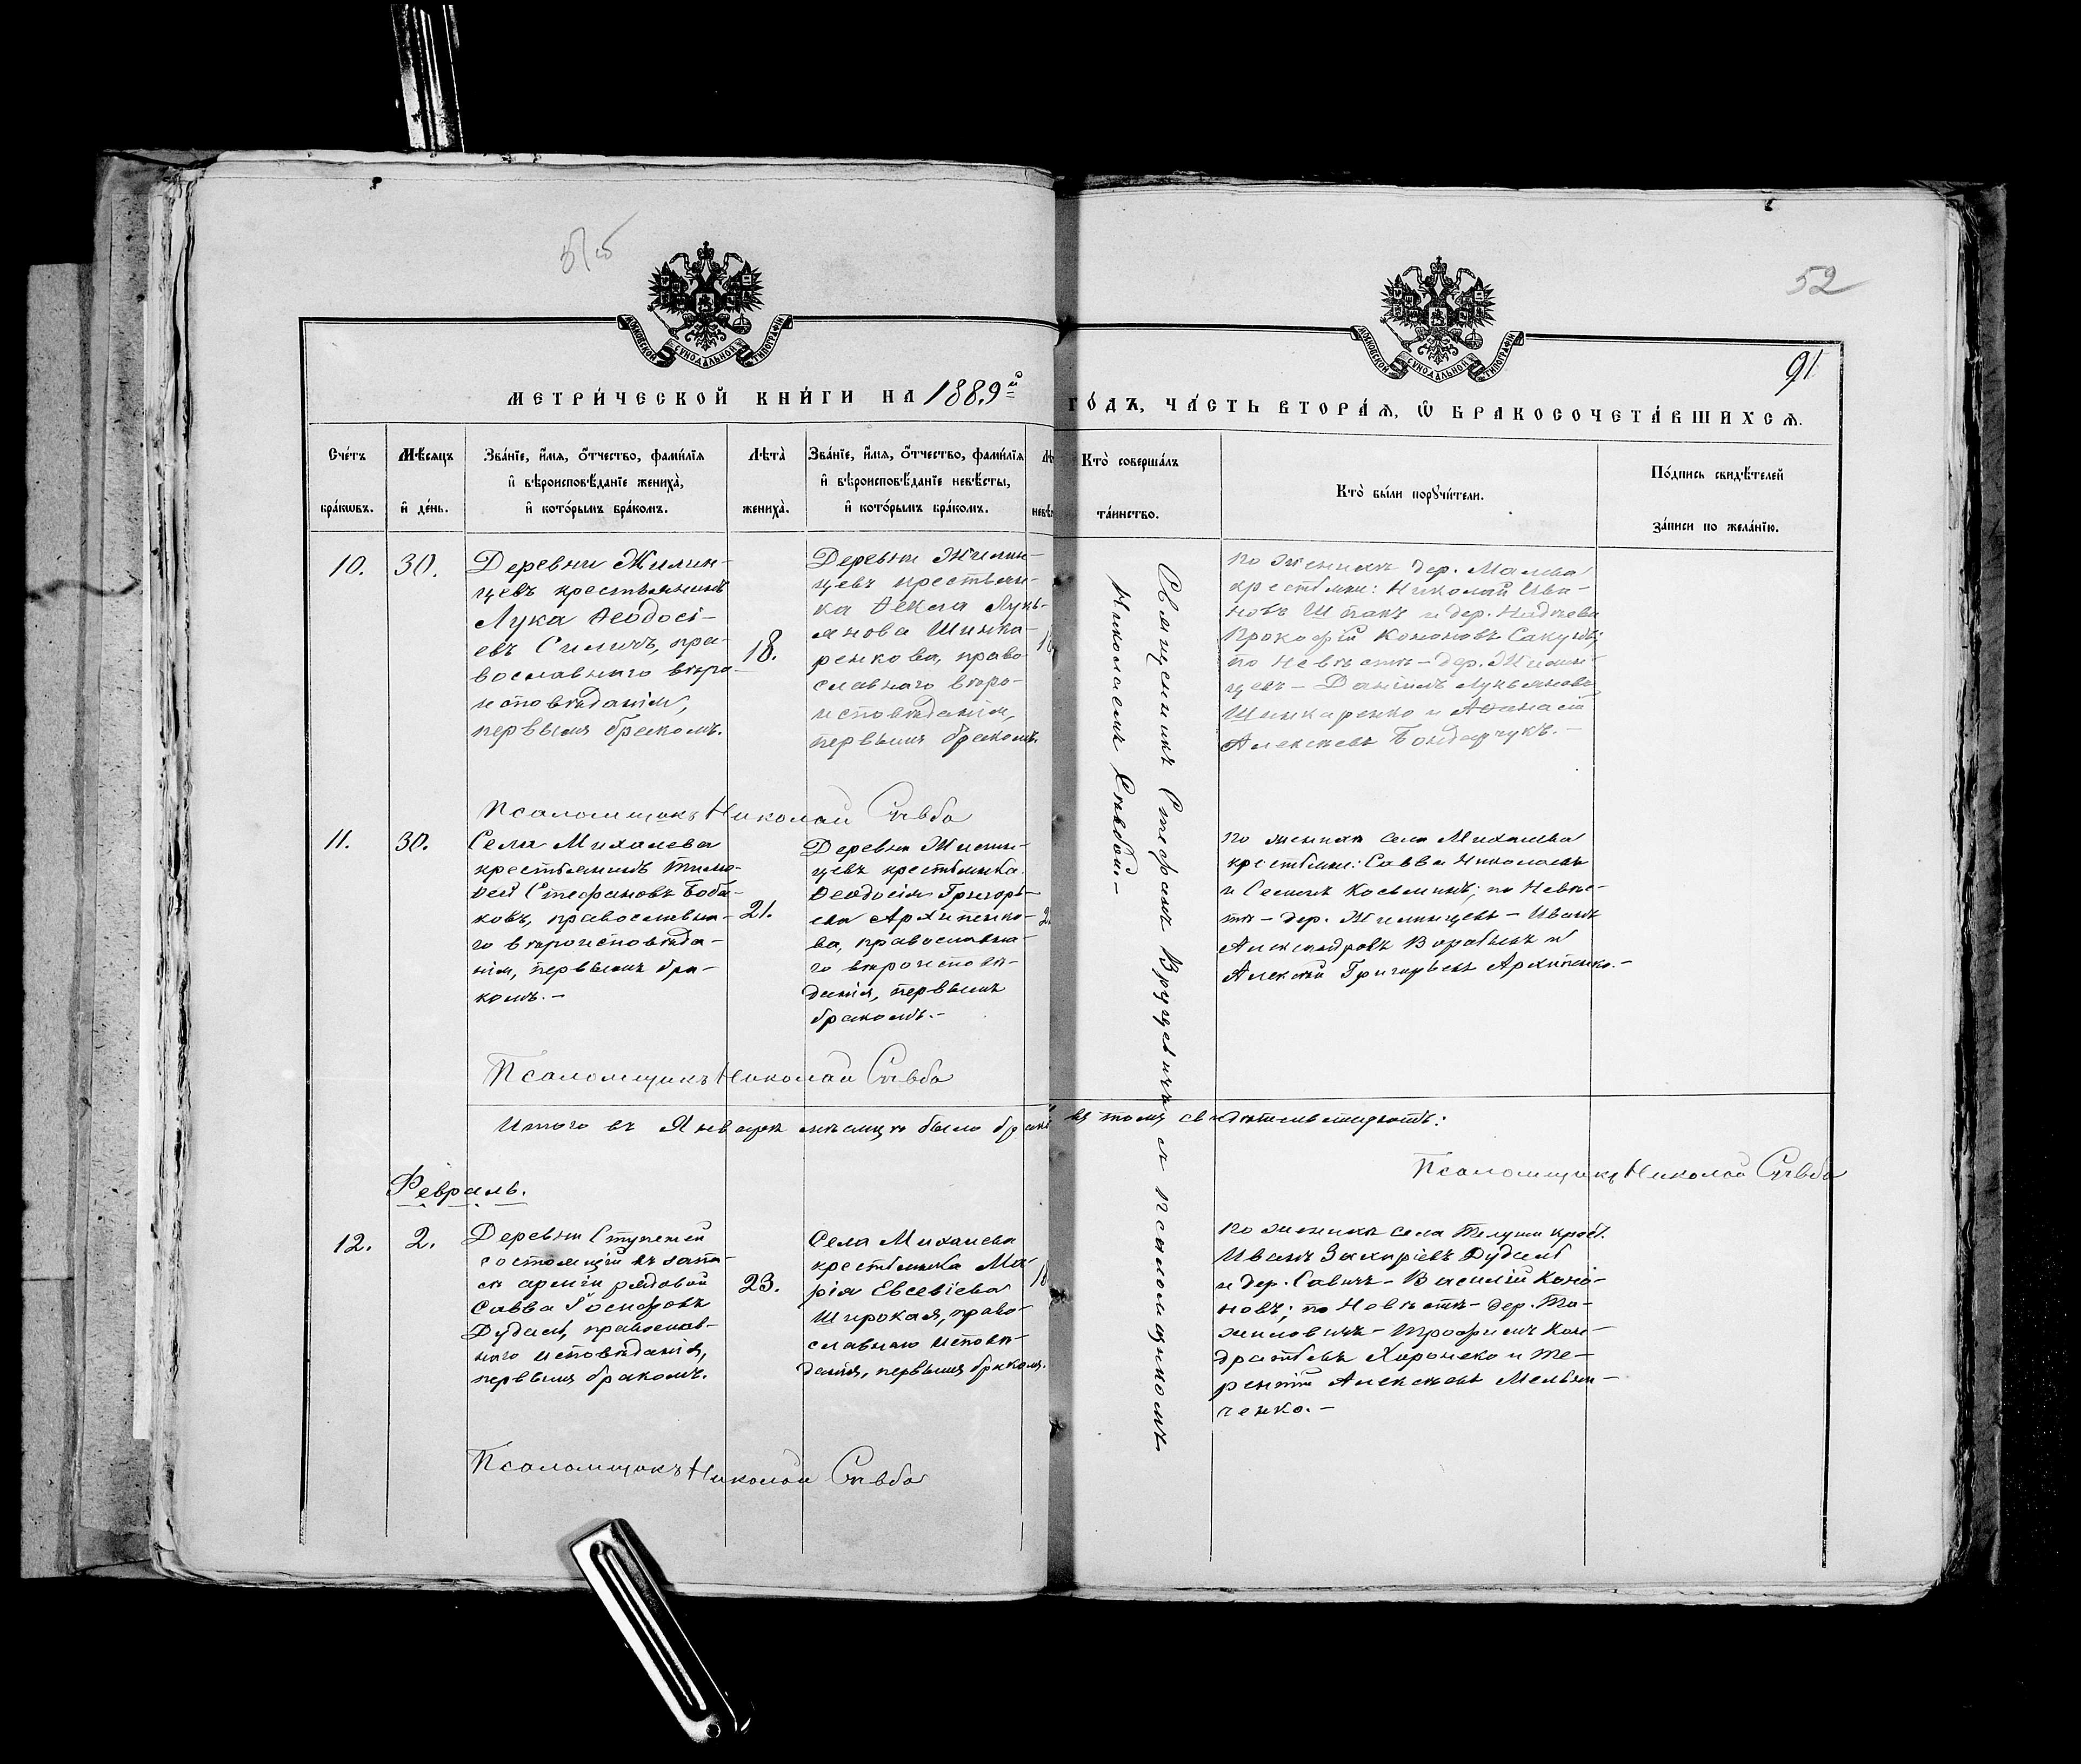 52
91
МОСКОВСКОЙ СѴНОДАЛЬНОЙ ТИПОГРАФІИ
МОСКОВСКОЙ СѴНОДАЛЬНОЙ ТИПОГРАФІИ
МЕТРИ́ЧЕСКОЙ КНИ́ГИ НА 1889й
ГО́ДЪ, ЧА́СТЬ ВТОРА́Ѧ, Ѡ҆ БРАКОСОЧЕТА́ВШИХСѦ.
Сче́тъ
бра́кѡвъ.
Мѣ́сяцъ
и҆ де́нь.
Зва́нїе, и҆́мя, ѻ҆́тчество, фами́лїя
и҆ вѣроисповѣ́данїе жениха̀,
и҆ кото́рымъ бра́комъ.
Лѣ́та̀
жениха̀.
Зва́нїе, и҆́мя, ѻ҆́тчество, фами́лїя
и҆ вѣроисповѣ́данїе невѣ́сты,
и҆ кото́рымъ бра́комъ.
Кто̀ соверша́лъ
та́инство.
Кто̀ бы́ли порꙋчи́тели.
По́дпись свидѣ́телей
за́писи по жела́нїю.
10.
30.
Деревни Жилин-
цевъ крестьянинъ
Лука Ѳеодосі-
евъ Силичъ, пра-
вославнаго вѣро-
исповѣданія,
первымъ бракомъ.
18.
Деревни Жилин-
цевъ крестьян-
ка Ѳекла Лукь-
янова Шинка-
ренкова, право-
славнаго вѣро-
исповѣданія,
первымъ бракомъ.
Священникъ Стефанъ Вруцевичъ и псаломщикомъ
Николаемъ Сѣвбой.-
по женихѣ дер. Малева
крестьяне: Николай Ива-
новъ Шпакъ и дер.
Прокофій Кононовъ
по невѣстѣ - дер. Жилин-
цевъ - Даніилъ Лукьяновъ
Шинкаренко и Аѳанасій
Алексѣевъ Бондарчукъ.-
Псаломщикъ Николай Сѣвба
11.
30.
Села Михалева
крестьянинъ Тимо-
ѳей Стефановъ Боба-
ковъ, православна-
го вѣроисповѣда-
нія, первымъ бра-
комъ.-
21.
Деревни Жилин-
цевъ крестьянка
Ѳеодосія Григорь-
ева Архипенко-
ва, православна-
го вѣроисповѣ-
данія, первымъ
бракомъ.-
по женихѣ села Михалева
крестьяне: Савва Николаевъ
и Семенъ Косьминъ; по невѣс-
тѣ - дер. Жилинцевъ - Иванъ
Александровъ Воробьевъ и
Алексѣй Григорьевъ Архипенко.-
Псаломщикъ Николай Сѣвба
Итого въ Январѣ мѣсяцѣ было въ томъ свидѣтельствуютъ:
Псаломщикъ Николай Сѣвба
Февраль.
12.
2.
Деревни Ступеней
состоящій въ запа-
сѣ арміи рядовой
Савва Іосифовъ
Дудаль, православ-
наго исповѣданія,
первымъ бракомъ.
23.
Села Михалева
крестьянка Ма-
рія Евсевіева
Широкая, право-
славнаго исповѣ-
данія, первымъ бракомъ.
по женихѣ села Телуши крест.
Иванъ Захаріевъ Дудаль
и дер. Савичъ - Василій Коно-
новъ; по невѣстѣ - дер. То-
миловичъ - Трофимъ Кон-
дратьевъ Хоронеко и Те-
рентій Алексѣевъ Мельни-
ченко.-
Псаломщикъ Николай Сѣвба